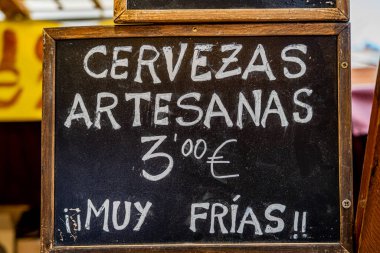 CERVEZAS
ARTESANAS
3'00€
¡¡MUY FRÍAS!!